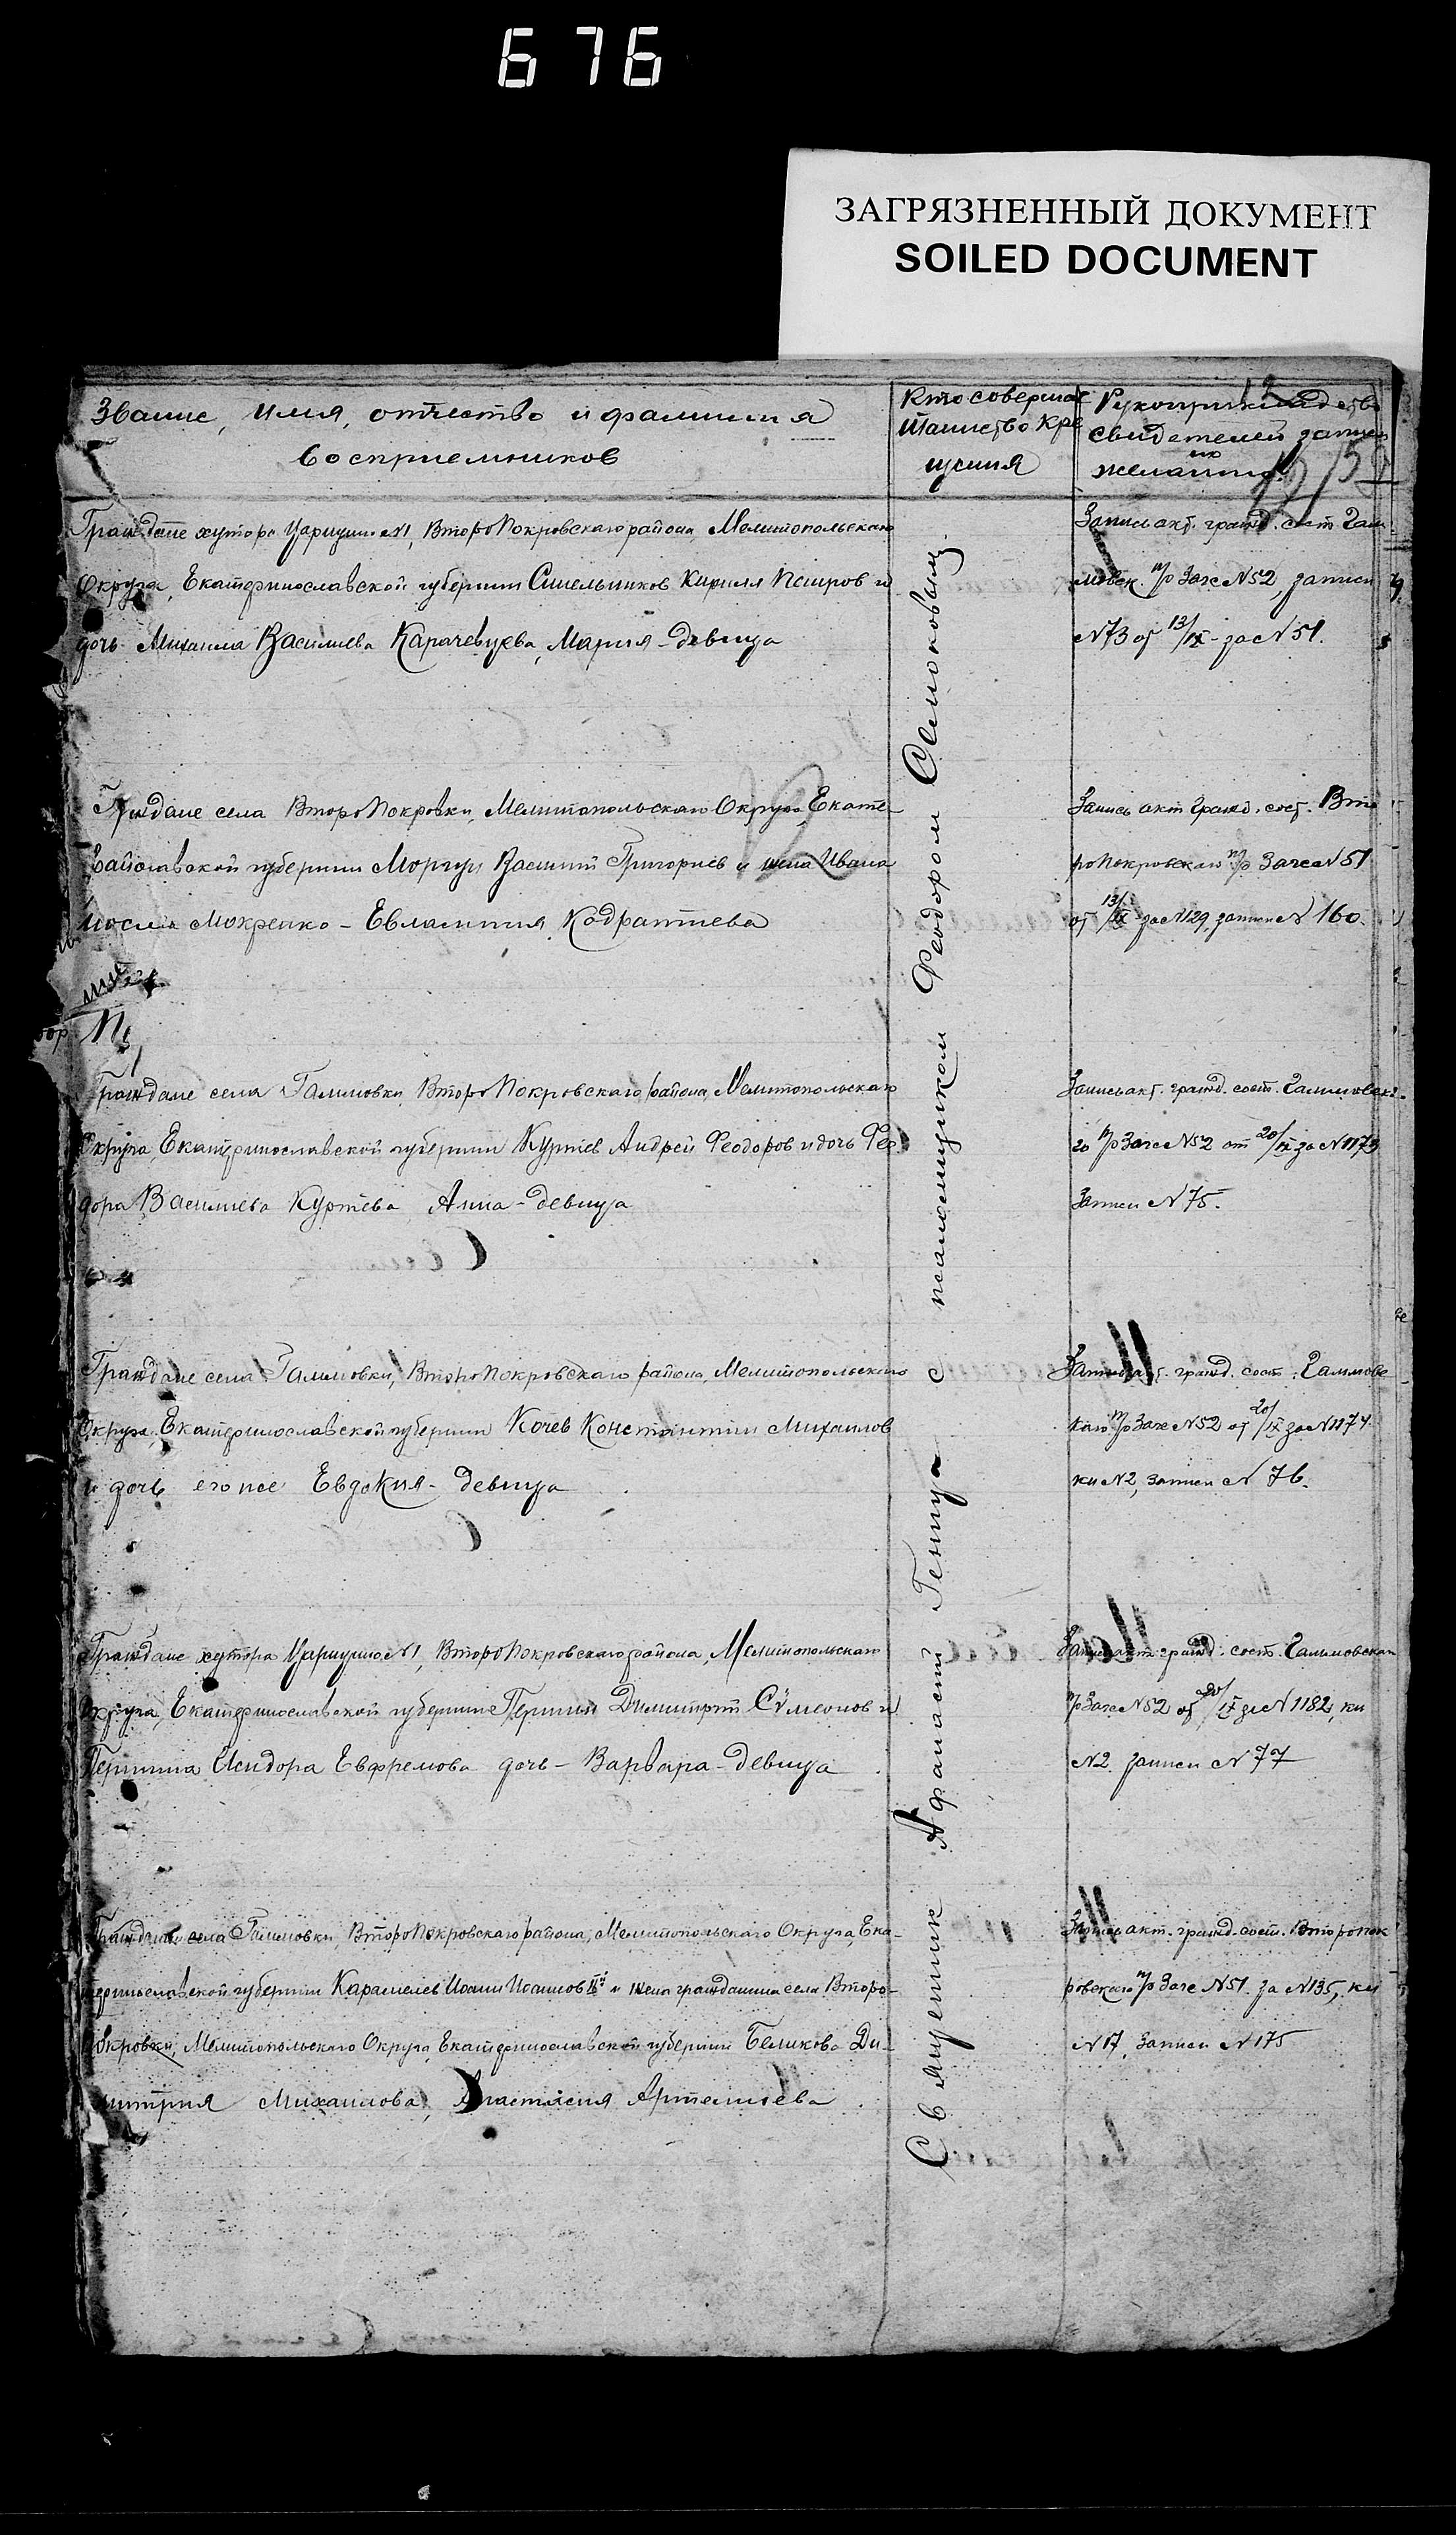 676
ЗАГРЯЗНЕННЫЙ ДОКУМЕНТ
SOILED DOCUMENT
Звание, имя, отчество и фамилия
восприемников
Кто совершал
таинство кре
щения
Рукоприкладство
свидетелей записи
по
желанию
Граждане хутора Царицино №1, ВтороПокровскаго района, Мелитопольскаго
Округа, Екатеринославской губернии Синельников Кирилл Петров и
дочь Михаила Василиева Карачевцева, Мария - девица
Запись акт. гражд. сост. Гам
мовск. п/р Загс №52, записи
№73 от 13/IX - за №51.
Граждане села ВтороПокровки, Мелитопольскаго Округа, Екате-
славской губернии Моргун Василий Григориев и жена Ивана
Мокренко - Евлампия Кодратиева
Запись акт гражд. сост. Вто
роПокровскаго п/р Загса №51
от 13/IX за №129, записи №160.
Граждане села Гаммовки, ВтороПокровскаго района, Мелитопольскаго
Округа, Екатеринославской губернии Куртев Андрей Феодоров и дочь Фео
дора Василиева Куртева Анна - девица
Запись акт. гражд. сост. Гаммовска-
го п/р Загс №52 от 20/IX за №1173
Записи №75.
Граждане села Гаммовки, ВтороПокровскаго района, Мелитопольскаго
Округа, Екатеринославской губернии Кочев Константин Михаилов
и дочь его же Евдокия - девица
Запись акт. гражд. сост. Гаммовс
каго п/р Загс №52 от 20/IX за №1174
кн №2, записи №76.
Граждане хутора Царицино №1, ВтороПокровскаго района, Мелитопольскаго
Округа, Екатеринославской губернии Першин Димитрий Симеонов и
Першина Исидора Евфремова дочь - Варвара - девица
Запись акт. гражд. сост. Гаммовскаго
п/р Загс №52 от 20/IX за №1182, кн
№2 записи №77
Граждане села Гаммовки, ВтороПокровскаго района, Мелитопольскаго Округа, Ека-
теринославской губернии Карамелев Иоанн Иоаннов и жена гражданина села Второ-
Покровки, Мелитопольскаго Округа, Екатеринославской губернии Беликова Ди-
митрия Михаилова, Анастасия Артемиева
Запись акт. гражд. сост. Второпок
ровскаго п/р Загс №51. за №135, кн
№17, записи №175
Священник Афанасий Геница с псаломщиком Феодором Симоковым.